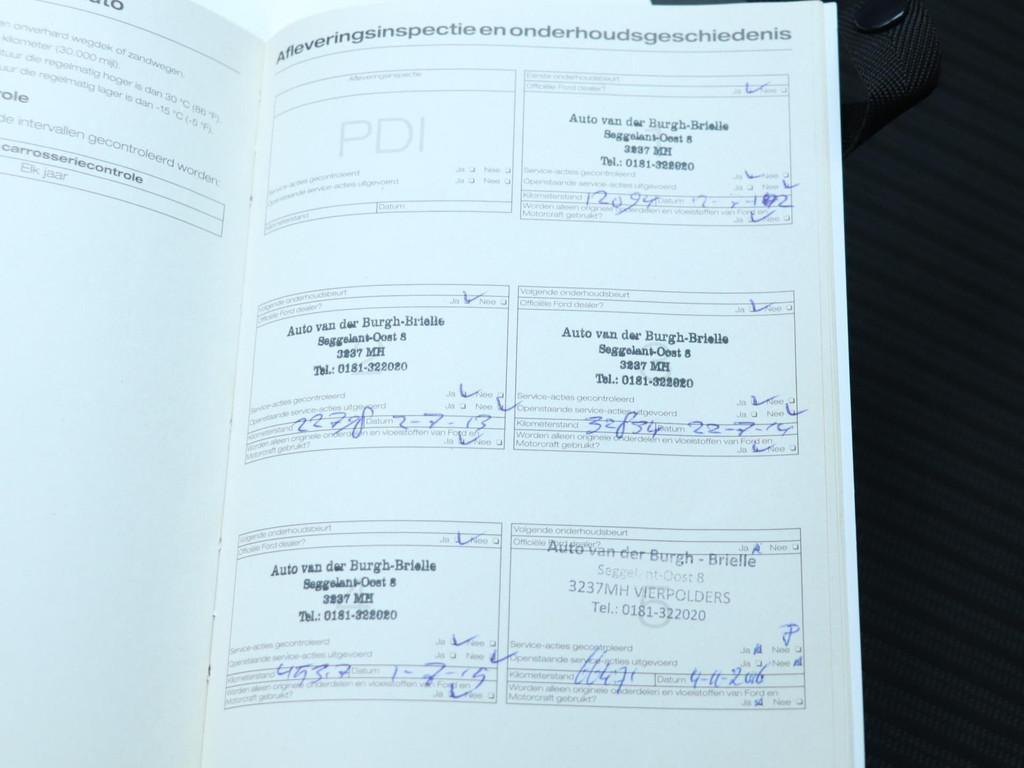 uto
n onverhard wegdek of zandwegen.
kilometer (30.000 mijl).
tuur die regelmatig hoger is dan 30 °C (86 °F).
uur die regelmatig lager is dan -15 °C (-5 °F).
role
de intervallen gecontroleerd worden:
carrosseriecontrole
Elk jaar
Afleveringsinspectie en onderhoudsgeschiedenis
Afleveringsinspectie
PDI
Service-acties gecontroleerd Ja Nee
Openstaande service-acties uitgevoerd Ja Nee
Kilometerstand Datum
Eerste onderhoudsbeurt
Officiële Ford dealer? Ja Nee
Auto van der Burgh-Brielle
Seggelant-Oost 8
3237 MH
Tel.: 0181-322020
Service-acties gecontroleerd Ja Nee
Openstaande service-acties uitgevoerd Ja Nee
Kilometerstand 12094 Datum
Worden alleen originele onderdelen en vloeistoffen van Ford en
Motorcraft gebruikt? Ja Nee
Volgende onderhoudsbeurt
Officiële Ford dealer? Ja Nee
Auto van der Burgh-Brielle
Seggelant-Oost 8
3237 MH
Tel.: 0181-322020
Service-acties gecontroleerd Ja Nee
Openstaande service-acties uitgevoerd Ja Nee
Kilometerstand Datum 2-7-13
Worden alleen originele onderdelen en vloeistoffen van Ford en
Motorcraft gebruikt? Ja Nee
Volgende onderhoudsbeurt
Officiële Ford dealer? Ja Nee
Auto van der Burgh-Brielle
Seggelant-Oost 8
3237 MH
Tel.: 0181-322020
Service-acties gecontroleerd Ja Nee
Openstaande service-acties uitgevoerd Ja Nee
Kilometerstand 32834 Datum 22-7-14
Worden alleen originele onderdelen en vloeistoffen van Ford en
Motorcraft gebruikt? Ja Nee
Volgende onderhoudsbeurt
Officiële Ford dealer? Ja Nee
Auto van der Burgh-Brielle
Seggelant-Oost 8
3237 MH
Tel.: 0181-322020
Service-acties gecontroleerd Ja Nee
Openstaande service-acties uitgevoerd Ja Nee
Kilometerstand Datum 1-7-15
Worden alleen originele onderdelen en vloeistoffen van Ford en
Motorcraft gebruikt? Ja Nee
Volgende onderhoudsbeurt
Officiële Ford dealer? Ja Nee
Auto van der Burgh - Brielle
Seggelant-Oost 8
3237MH VIERPOLDERS
Tel.: 0181-322020
Service-acties gecontroleerd Ja Nee
Openstaande service-acties uitgevoerd Ja Nee
Kilometerstand Datum 4-11-2016
Worden alleen originele onderdelen en vloeistoffen van Ford en
Motorcraft gebruikt? Ja Nee